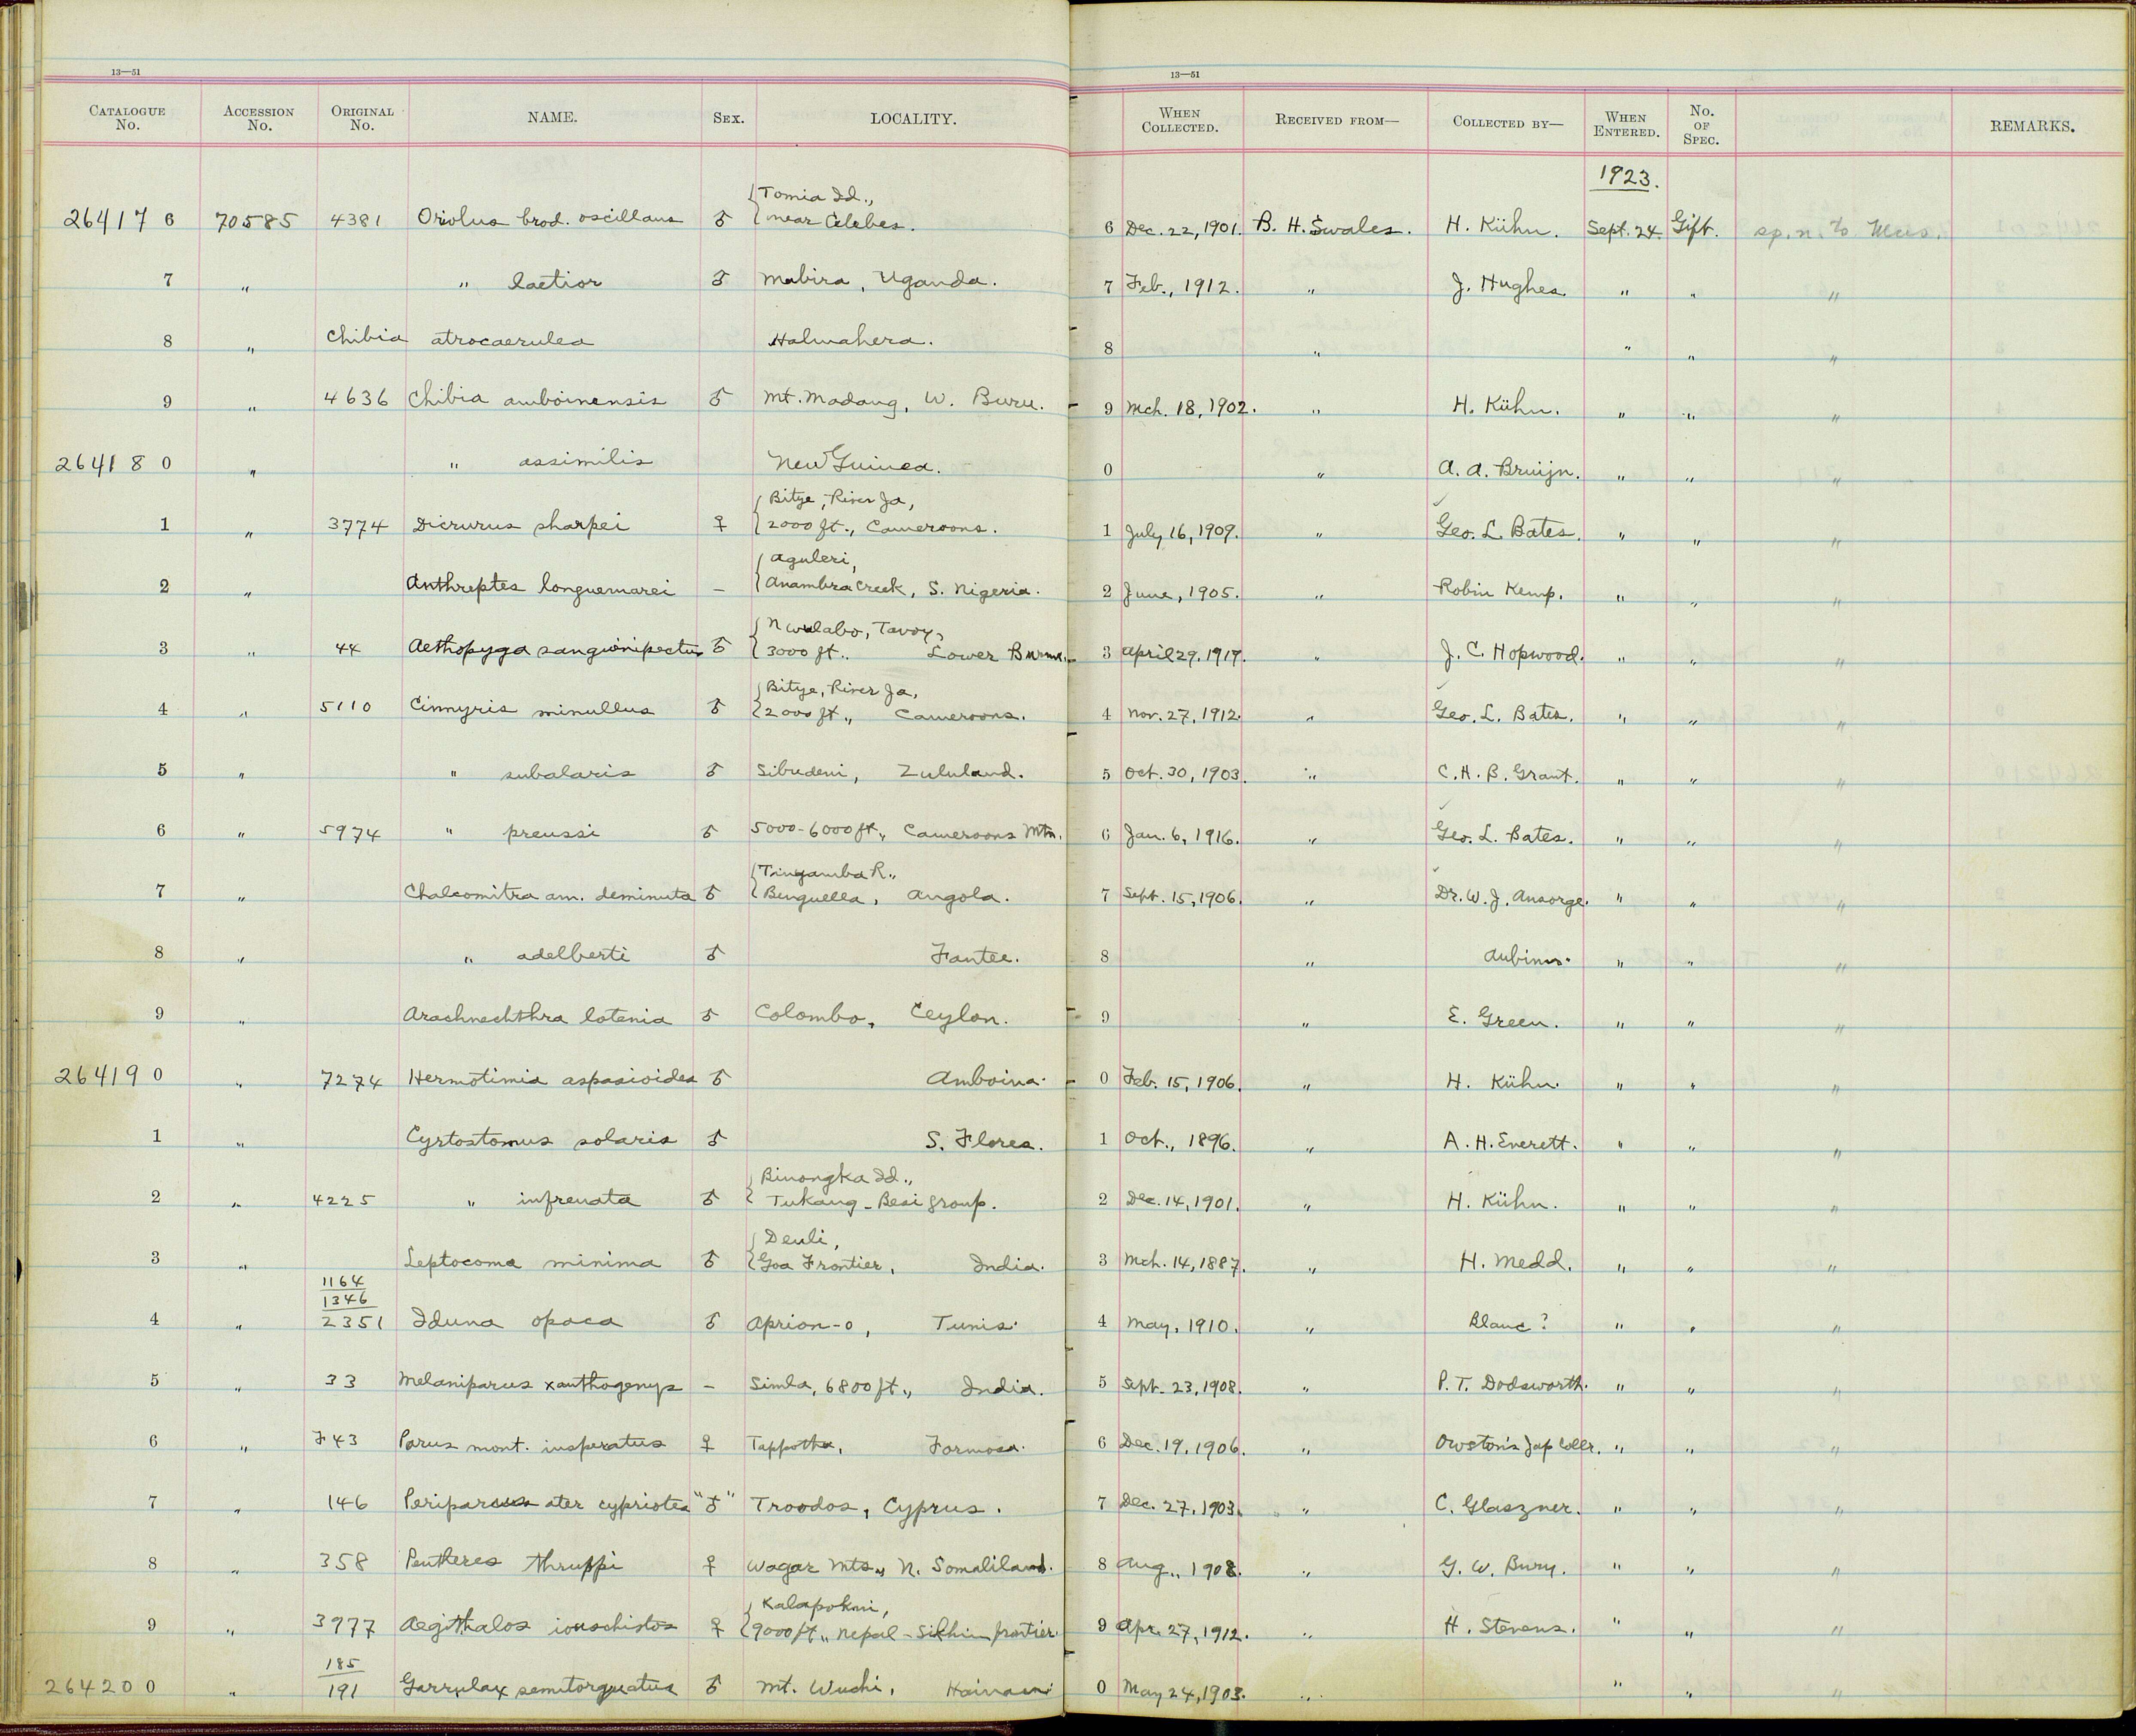 13—51 13—51
CATALOGUE No. ACCESSION No. ORIGINAL No. NAME. SEX. LOCALITY. WHEN COLLECTED. RECEIVED FROM— COLLECTED BY— WHEN ENTERED. No. OF SPEC. REMARKS.
1923.
Tomia Id.,
26417 6 70585 4381 Oriolus brod. oscillans ♂ near Celebes. 6 Dec. 22, 1901. B. H. Swales. H. Kühn. Sept. 24. Gift. sp. n. to Mus.
7 " " laetior ♂ Mabira, Uganda. 7 Feb., 1912. " J. Hughes " " "
8 " Chibia atrocaerulea Halmahera. 8 " " " "
9 " 4636 Chibia amboinensis ♂ Mt. Madang, W. Buru. 9 Mch. 18, 1902. " H. Kühn. " " "
26418 0 " " assimilis New Guinea. 0 " A. A. Bruijn. " " "
Bitye, River Ja,
1 " 3774 Dicrurus sharpei ♀ 2000 ft., Cameroons. 1 July 16, 1909. " Geo. L. Bates. " " "
Aguleri,
2 " Anthreptes longuemarei – Anambra Creek, S. Nigeria. 2 June, 1905. " Robin Kemp. " " "
Nwalabo, Tavoy,
3 " 44 Aethopyga sanguinipectus ♂ 3000 ft., Lower Burma. 3 April 29, 1919. " J. C. Hopwood. " " "
Bitye, River Ja,
4 " 5110 Cinnyris minullus ♂ 2000 ft., Cameroons. 4 Nov. 27, 1912. " Geo. L. Bates. " " "
5 " " subalaris ♂ Sibudeni, Zululand. 5 Oct. 30, 1903. " C. H. B. Grant. " " "
6 " 5974 " preussi ♂ 5000-6000 ft., Cameroons Mtn. 6 Jan. 6, 1916. " Geo. L. Bates. " " "
R.,
7 " Chalcomitra am. deminuta ♂ Benguella, Angola. 7 Sept. 15, 1906. " Dr. W. J. Ansorge. " " "
8 " " adelberti ♂ Fantee. 8 " Aubinn. " " "
9 " Arachnechthra lotenia ♂ Colombo, Ceylon. 9 " E. Green. " " "
26419 0 " 7274 Hermotimia aspasioides ♂ Amboina. 0 Feb. 15, 1906. " H. Kühn. " " "
1 " Cyrtostomus solaris ♂ S. Flores. 1 Oct., 1896. " A. H. Everett. " " "
Binongka Id.,
2 " 4225 " infrenata ♂ Tukang-Besi group. 2 Dec. 14, 1901. " H. Kühn. " " "
Deuli,
3 " Leptocoma minima ♂ Goa Frontier, India. 3 Mch. 14, 1887. " H. Medd. " " "
1164
1346
4 " 2351 Iduna opaca ♂ Aprion-o, Tunis. 4 May, 1910. " Blanc? " " "
5 " 33 Melaniparus xanthogenys – Simla, 6800 ft., India. 5 Sept. 23, 1908. " P. T. Dodsworth. " " "
6 " 743 Parus mont. insperatus ♀ Tappotha, Formosa. 6 Dec. 19, 1906. " Owston's Jap Collr. " " "
7 " 146 Periparus ater cypriotes "♂" Troodos, Cyprus. 7 Dec. 27, 1903. " C. Glaszner. " " "
8 " 358 Pentheres thruppi ♀ Wagar Mts., N. Somaliland. 8 Aug., 1908. " G. W. Bury. " " "
Kalapokri,
9 " 3977 Aegithalos iouschistos ♀ 9000 ft., Nepal-Sikhim frontier. 9 Apr. 27, 1912. " H. Stevens. " " "
185
26420 0 " 191 Garrulax semitorquatus ♂ Mt. Wuchi, Hainan. 0 May 24, 1903. " " " "